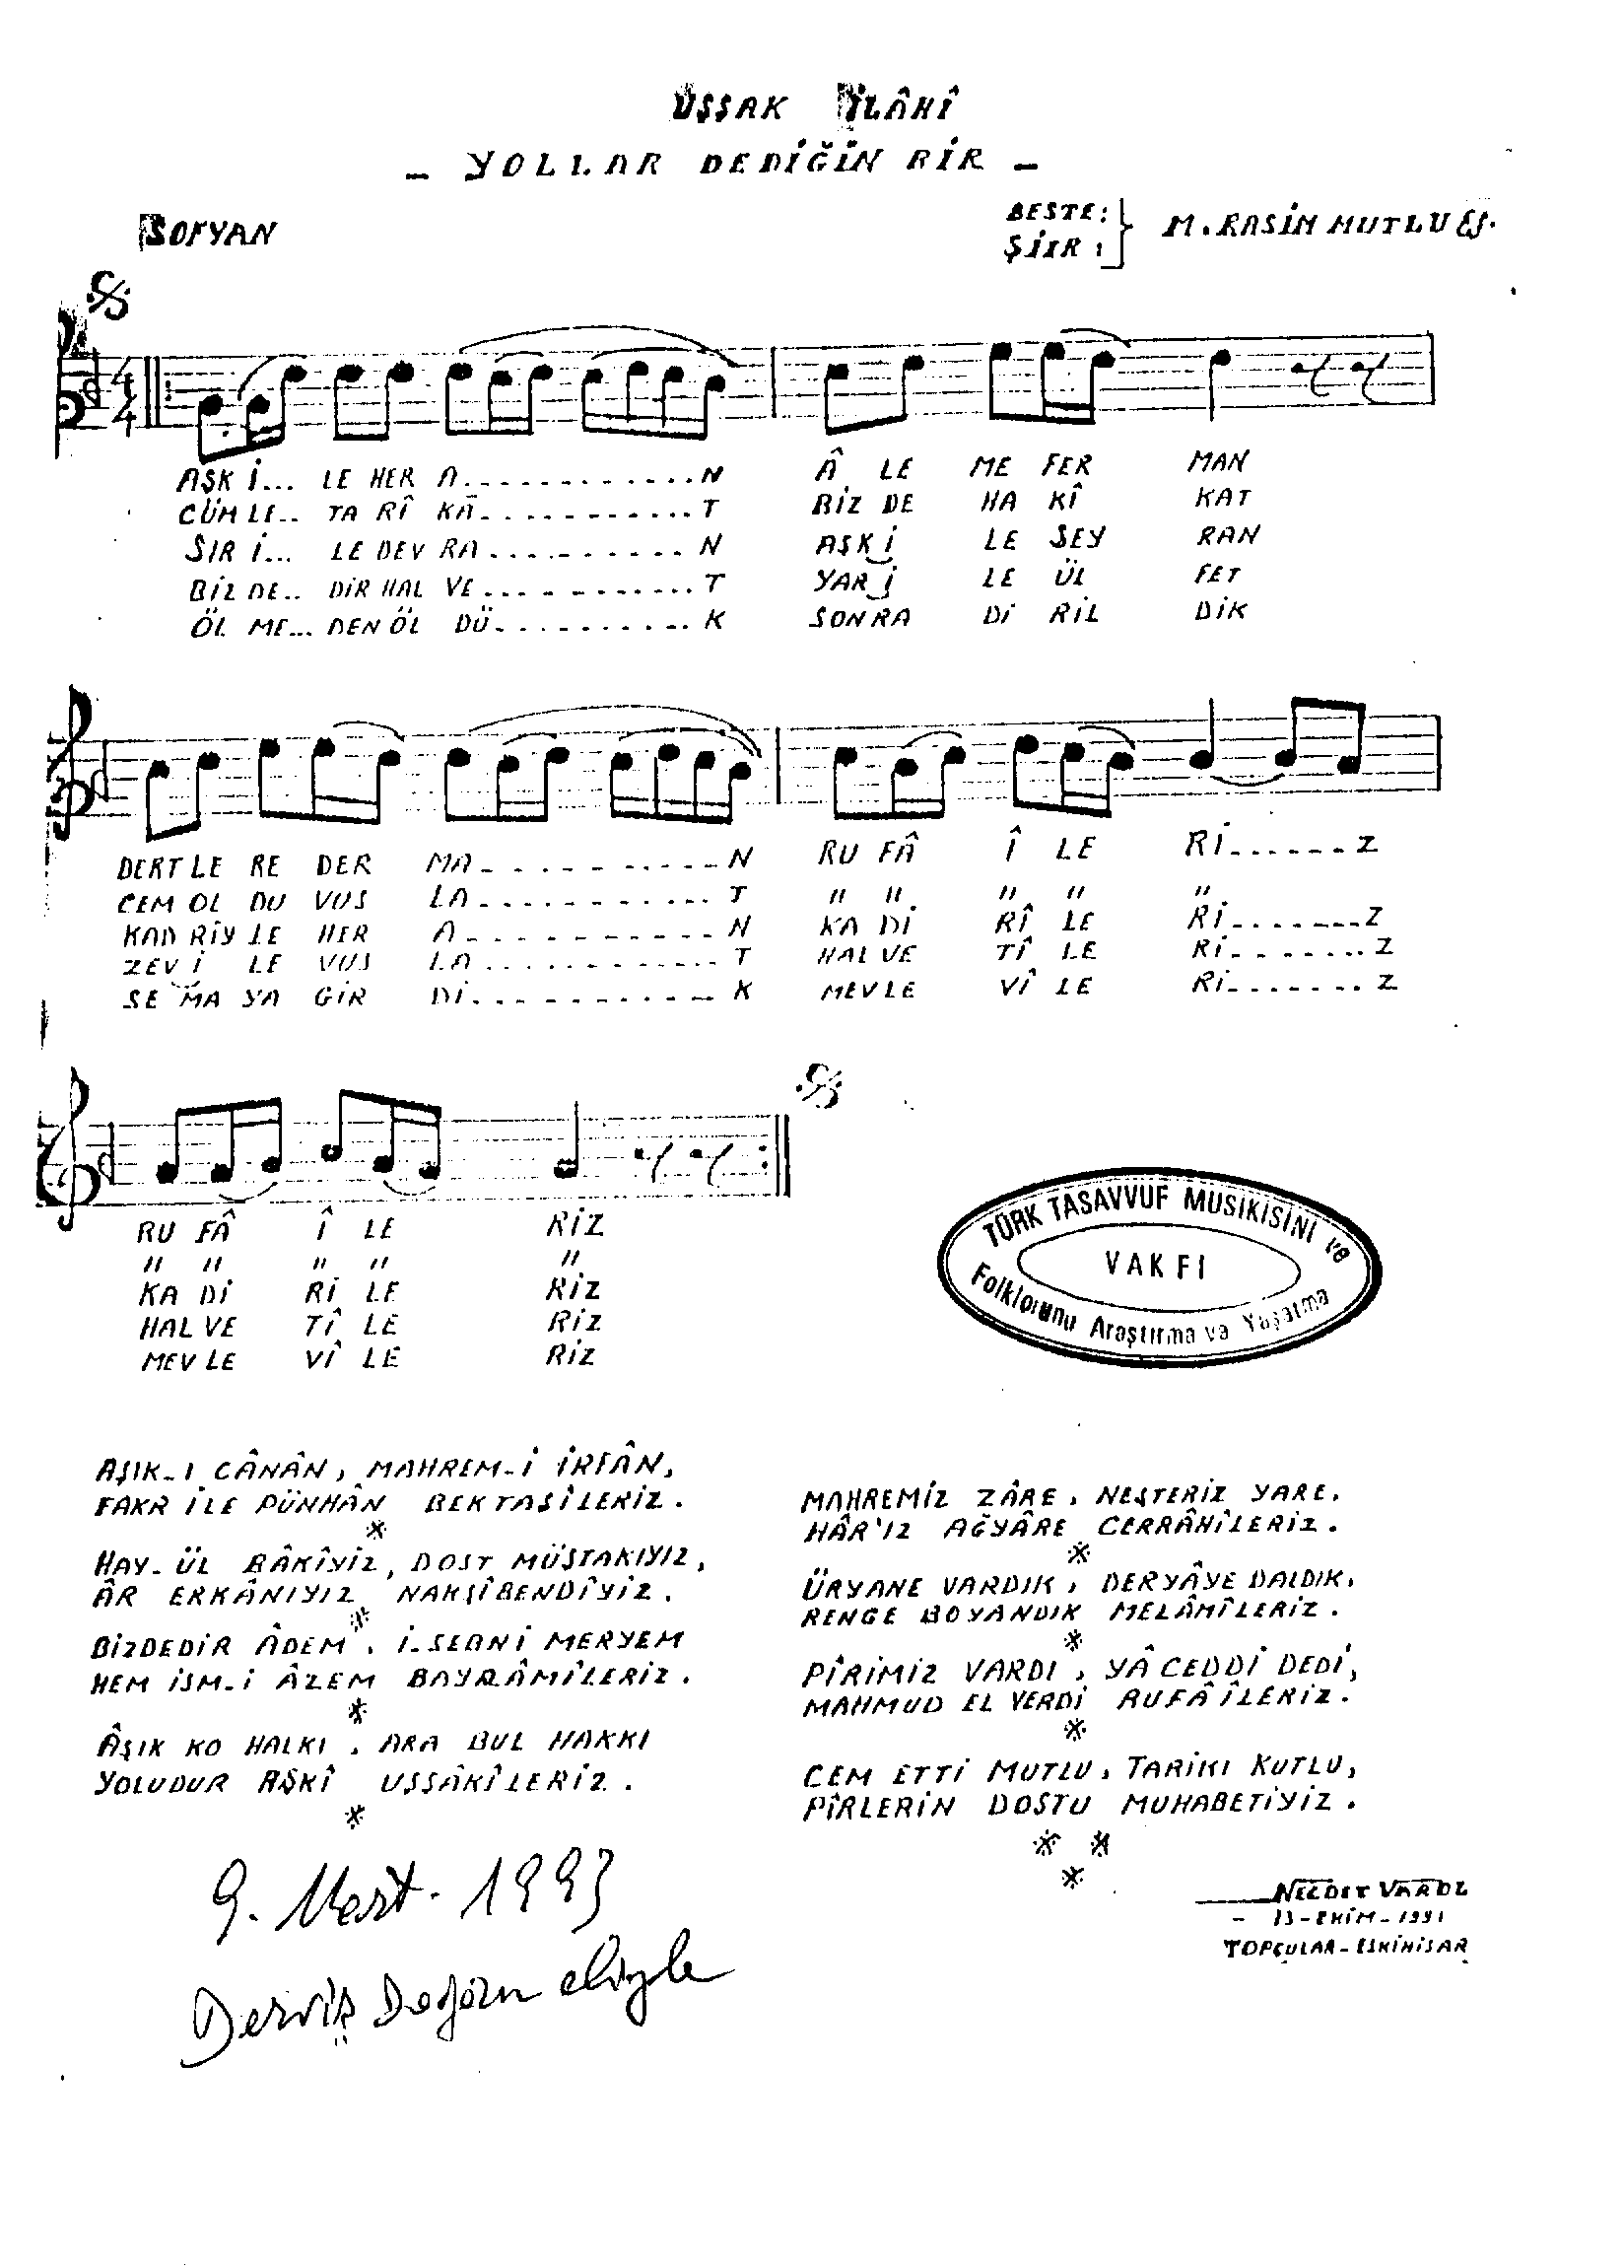 UŞŞAK İLÂHÎ
- YOLLAR DEDİĞİN BİR -
SOFYAN
BESTE:
ŞİİR :
M. RASİM MUTLU
4/4
AŞK İ... LE HER A............N Â LE ME FER MAN
CÜMLE.. TA RÎ KÂ............T BİZ DE HA KÎ KAT
SIR İ... LE DEV RA............N AŞK İ LE SEY RAN
BİZ DE.. DİR HAL VE............T YAR İ LE ÜL FET
ÖL ME... DEN ÖL DÜ............K SONRA Dİ RİL DİK
DERT LE RE DER MA............N RU FÂ Î LE Rİ.......Z
CEM OL DU VUS LA............T " " " " "
KAD RİY LE HER A............N KA Dİ RÎ LE Rİ.......Z
ZEV İ LE VUS LA............T HAL VE TÎ LE Rİ.......Z
SE MA YA GİR Dİ............K MEV LE VÎ LE Rİ.......Z
RU FÂ Î LE RİZ
" " " " "
KA Dİ Rİ LE RİZ
HAL VE TÎ LE RİZ
MEV LE VÎ LE RİZ
TÜRK TASAVVUF MUSIKISİNİ ve
VAKFI
Folklorunu Araştırma va Yaşatma
AŞIK-I CÂNÂN, MAHREM-İ İRFÂN,
FAKR İLE PÜNHÂN BEKTAŞÎLERİZ.
*
HAY-ÜL BÂKÎYİZ, DOST MÜŞTAKIYIZ,
ÂR ERKÂNIYIZ NAKŞÎBENDÎYİZ.
*
BİZDEDİR ÂDEM, İ.SEANİ MERYEM
HEM İSM-İ ÂZEM BAYRÂMÎLERİZ.
*
ÂŞIK KO HALKI, ARA BUL HAKKI
YOLUDUR AŞKÎ UŞŞÂKÎLERİZ.
*
MAHREMİZ ZÂRE, NEŞTERİZ YARE,
HÂR'IZ AĞYÂRE CERRÂHÎLERİZ.
*
ÜRYANE VARDIK, DERYÂYE DALDIK,
RENGE BOYANDIK MELÂMÎLERİZ.
*
PÎRİMİZ VARDI, YÂ CEDDİ DEDİ,
MAHMUD EL VERDİ RUFÂÎLERİZ.
*
CEM ETTİ MUTLU, TARİKI KUTLU,
PÎRLERİN DOSTU MUHABETİYİZ.
* *
*
9. Mart. 1993
Derviş Doğan eliyle
NECDET VAROL
- 13-EKİM-1991
TOPÇULAR-ESKİHİSAR